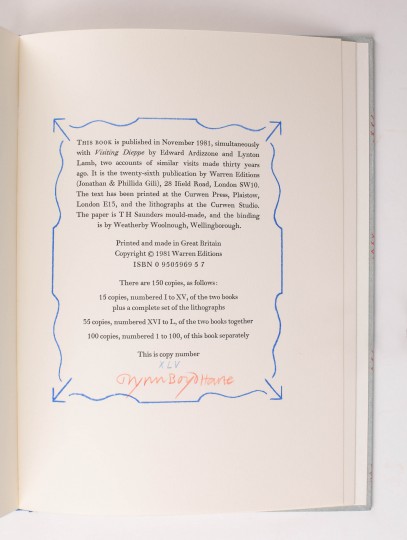 THIS BOOK is published in November 1981, simultaneously
with Visiting Dieppe by Edward Ardizzone and Lynton
Lamb, two accounts of similar visits made thirty years
ago. It is the twenty-sixth publication by Warren Editions
(Jonathan & Phillida Gili), 28 Ifield Road, London SW10.
The text has been printed at the Curwen Press, Plaistow,
London E15, and the lithographs at the Curwen Studio.
The paper is T H Saunders mould-made, and the binding
is by Weatherby Woolnough, Wellingborough.
Printed and made in Great Britain
Copyright © 1981 Warren Editions
ISBN 0 9505969 5 7
There are 150 copies, as follows:
15 copies, numbered I to XV, of the two books
plus a complete set of the lithographs
35 copies, numbered XVI to L, of the two books together
100 copies, numbered 1 to 100, of this book separately
This is copy number
XLV
Glynn Boyd Harte